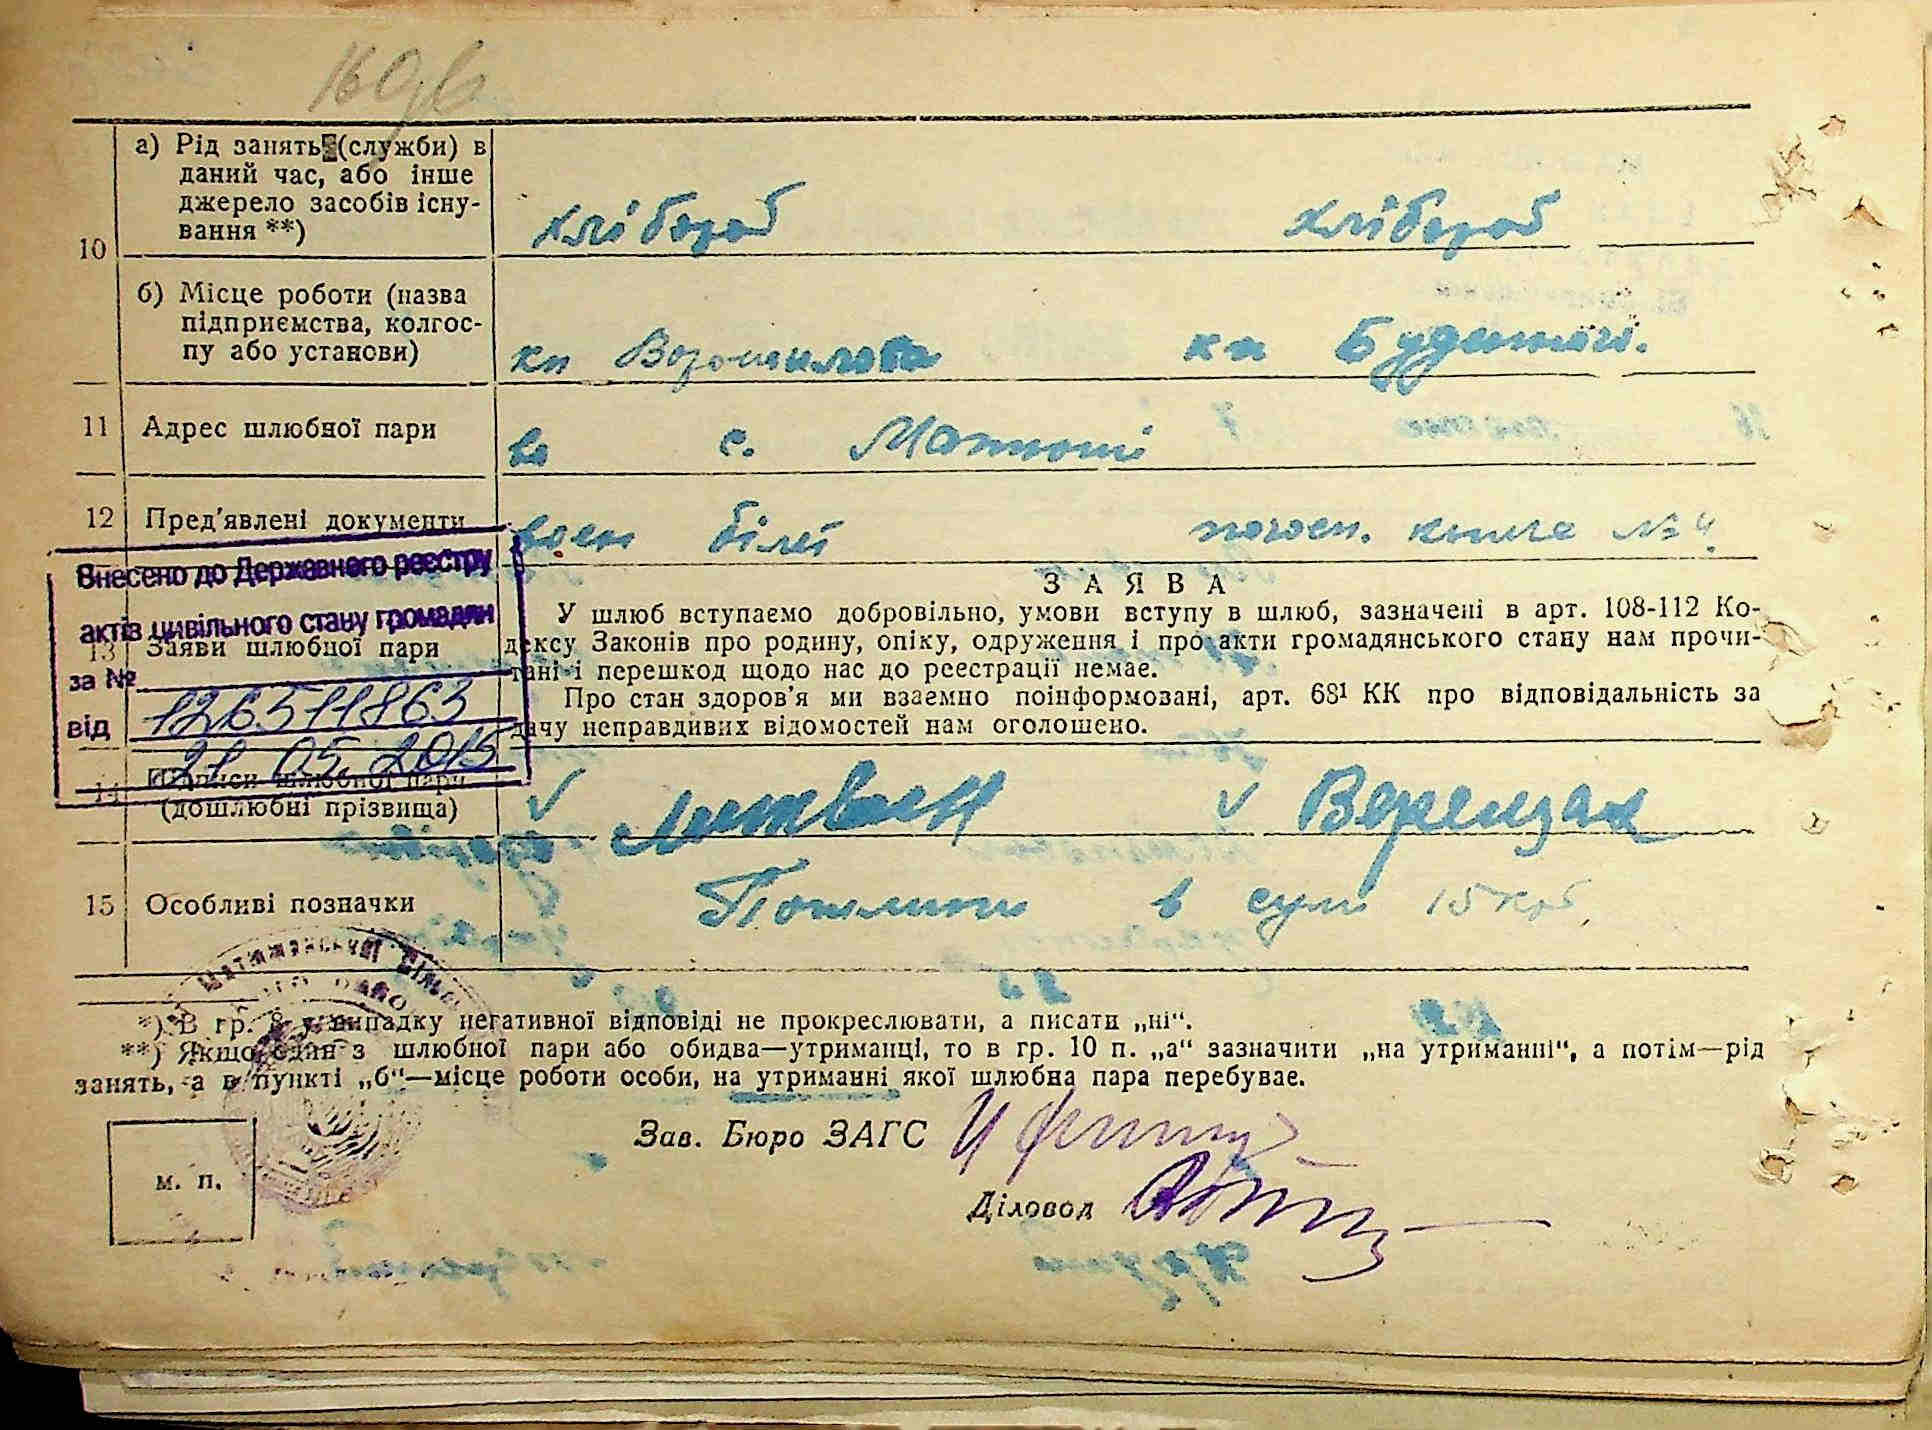 а) Рід занять (служби) в
даний час, або інше
джерело засобів існу-
вання **)
хлібороб хлібороб
10
б) Місце роботи (назва
підприємства, колгос-
пу або установи)
кп Ворошилова кп Будьоного.
11 Адрес шлюбної пари
с. Матюші
12 Пред'явлені документи
воен білет погосп. книга № 4
Внесено до Державного реєстру
актів цивільного стану громадян
за № 126511863
від 21 05. 2015
13 Заяви шлюбної пари
ЗАЯВА
У шлюб вступаємо добровільно, умови вступу в шлюб, зазначені в арт. 108-112 Ко-
дексу Законів про родину, опіку, одруження і про акти громадянського стану нам прочи-
тані і перешкод щодо нас до реєстрації немає.
Про стан здоров'я ми взаємно поінформовані, арт. 68¹ КК про відповідальність за
дачу неправдивих відомостей нам оголошено.
14 Підписи шлюбної пари
(дошлюбні прізвища)
✓ Литвин ✓ Верещак
15 Особливі позначки
Пошлини в сумі 15 крб
*) В гр. 8 у випадку негативної відповіді не прокреслювати, а писати „ні“.
**) Якщо один з шлюбної пари або обидва—утриманці, то в гр. 10 п. „а“ зазначити „на утриманні“, а потім—рід
занять, а в пункті „б“—місце роботи особи, на утриманні якої шлюбна пара перебуває.
Зав. Бюро ЗАГС
м. п.
Діловод